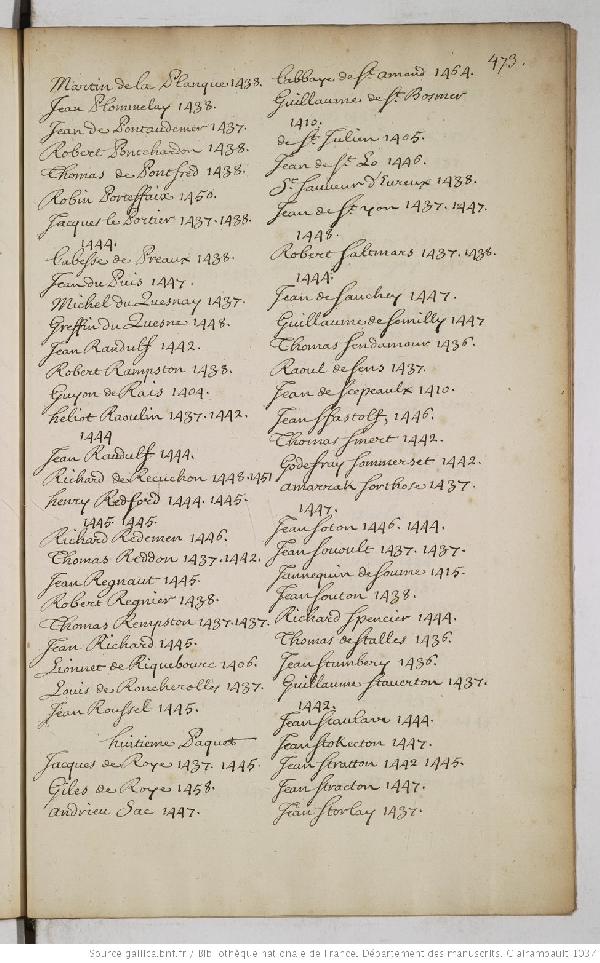 473.
Martin de la Planque 1438.
Jean Plommelay 1438.
Jean de Pontaudemer 1437.
Robert Pontchardon 1438.
Thomas de Pontfred 1438.
Robin Porteffaix 1450.
Jacques le Portier 1437. 1438.
1444.
L'abesse de Preaux 1438.
Jean du Puis 1447.
Michel du Quesnay 1437.
Greffin du Quesne 1448.
Jean Randulf 1442.
Robert Rampston 1438.
Guyon de Rais 1404.
heliot Raoulin 1437. 1442.
1444
Jean Randulf 1444.
Richard de Recuchon 1448. 1451
henry Redford 1444. 1445.
1445. 1445.
Richard Redemen 1446.
Thomas Reddon 1437. 1442.
Jean Regnaut 1445.
Robert Regnier 1438.
Thomas Rempston 1437. 1437.
Jean Richard 1445.
Lionnet de Riquebourc 1406.
Louis de Roncherolles 1437.
Jean Roussel 1445.
huitieme Paquet
Jacques de Roye 1437. 1445.
Giles de Roye 1458.
andrieu Sac 1447.
L'abbaye de St. amand 1464.
Guillaume de St. Bosmer
1410.
de St. Julien 1405.
Jean de St. Lo 1446.
St. Sauveur d'Evreux 1438.
Jean de St. yon 1437. 1447.
1448.
Robert Saltmars 1437. 1438.
1444.
Jean de Sauchey 1447.
Guillaume de Semilly 1447
Thomas Sendamour 1436.
Raoul de Sens 1437.
Jean de Scepeaulx 1410.
Jean Sfastolf, 1446.
Thomas Smert 1442.
Godefray Sommerset 1442.
amarrah Sorthose 1437.
1447.
Jean Soton 1446. 1444.
Jean Souoult 1437. 1437.
Jannequin de Soume 1415.
Jean Souton 1438.
Richard Spencier 1444.
Thomas de Stalles 1436.
Jean Stambery 1436.
Guillaume Staverton 1437.
1442.
Jean Staulaw 1444.
Jean Stokecton 1447.
Jean Stratton 1442 1445.
Jean Stracton 1447.
Jean Storlay 1437.
Source gallica.bnf.fr / Bibliothèque nationale de France. Département des manuscrits. Clairambault 1037